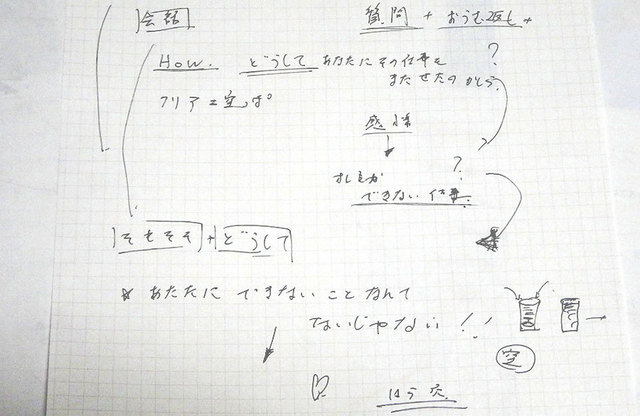 会話
質問 + おうむ返し +
How. どうして あなたにその仕事を
またせたのかしら?
クリア = 空っぽ
感情
?
オレしか
できない仕事
そもそも + どうして
☆ あなたに できないこと なんて
ないじゃない!!
空